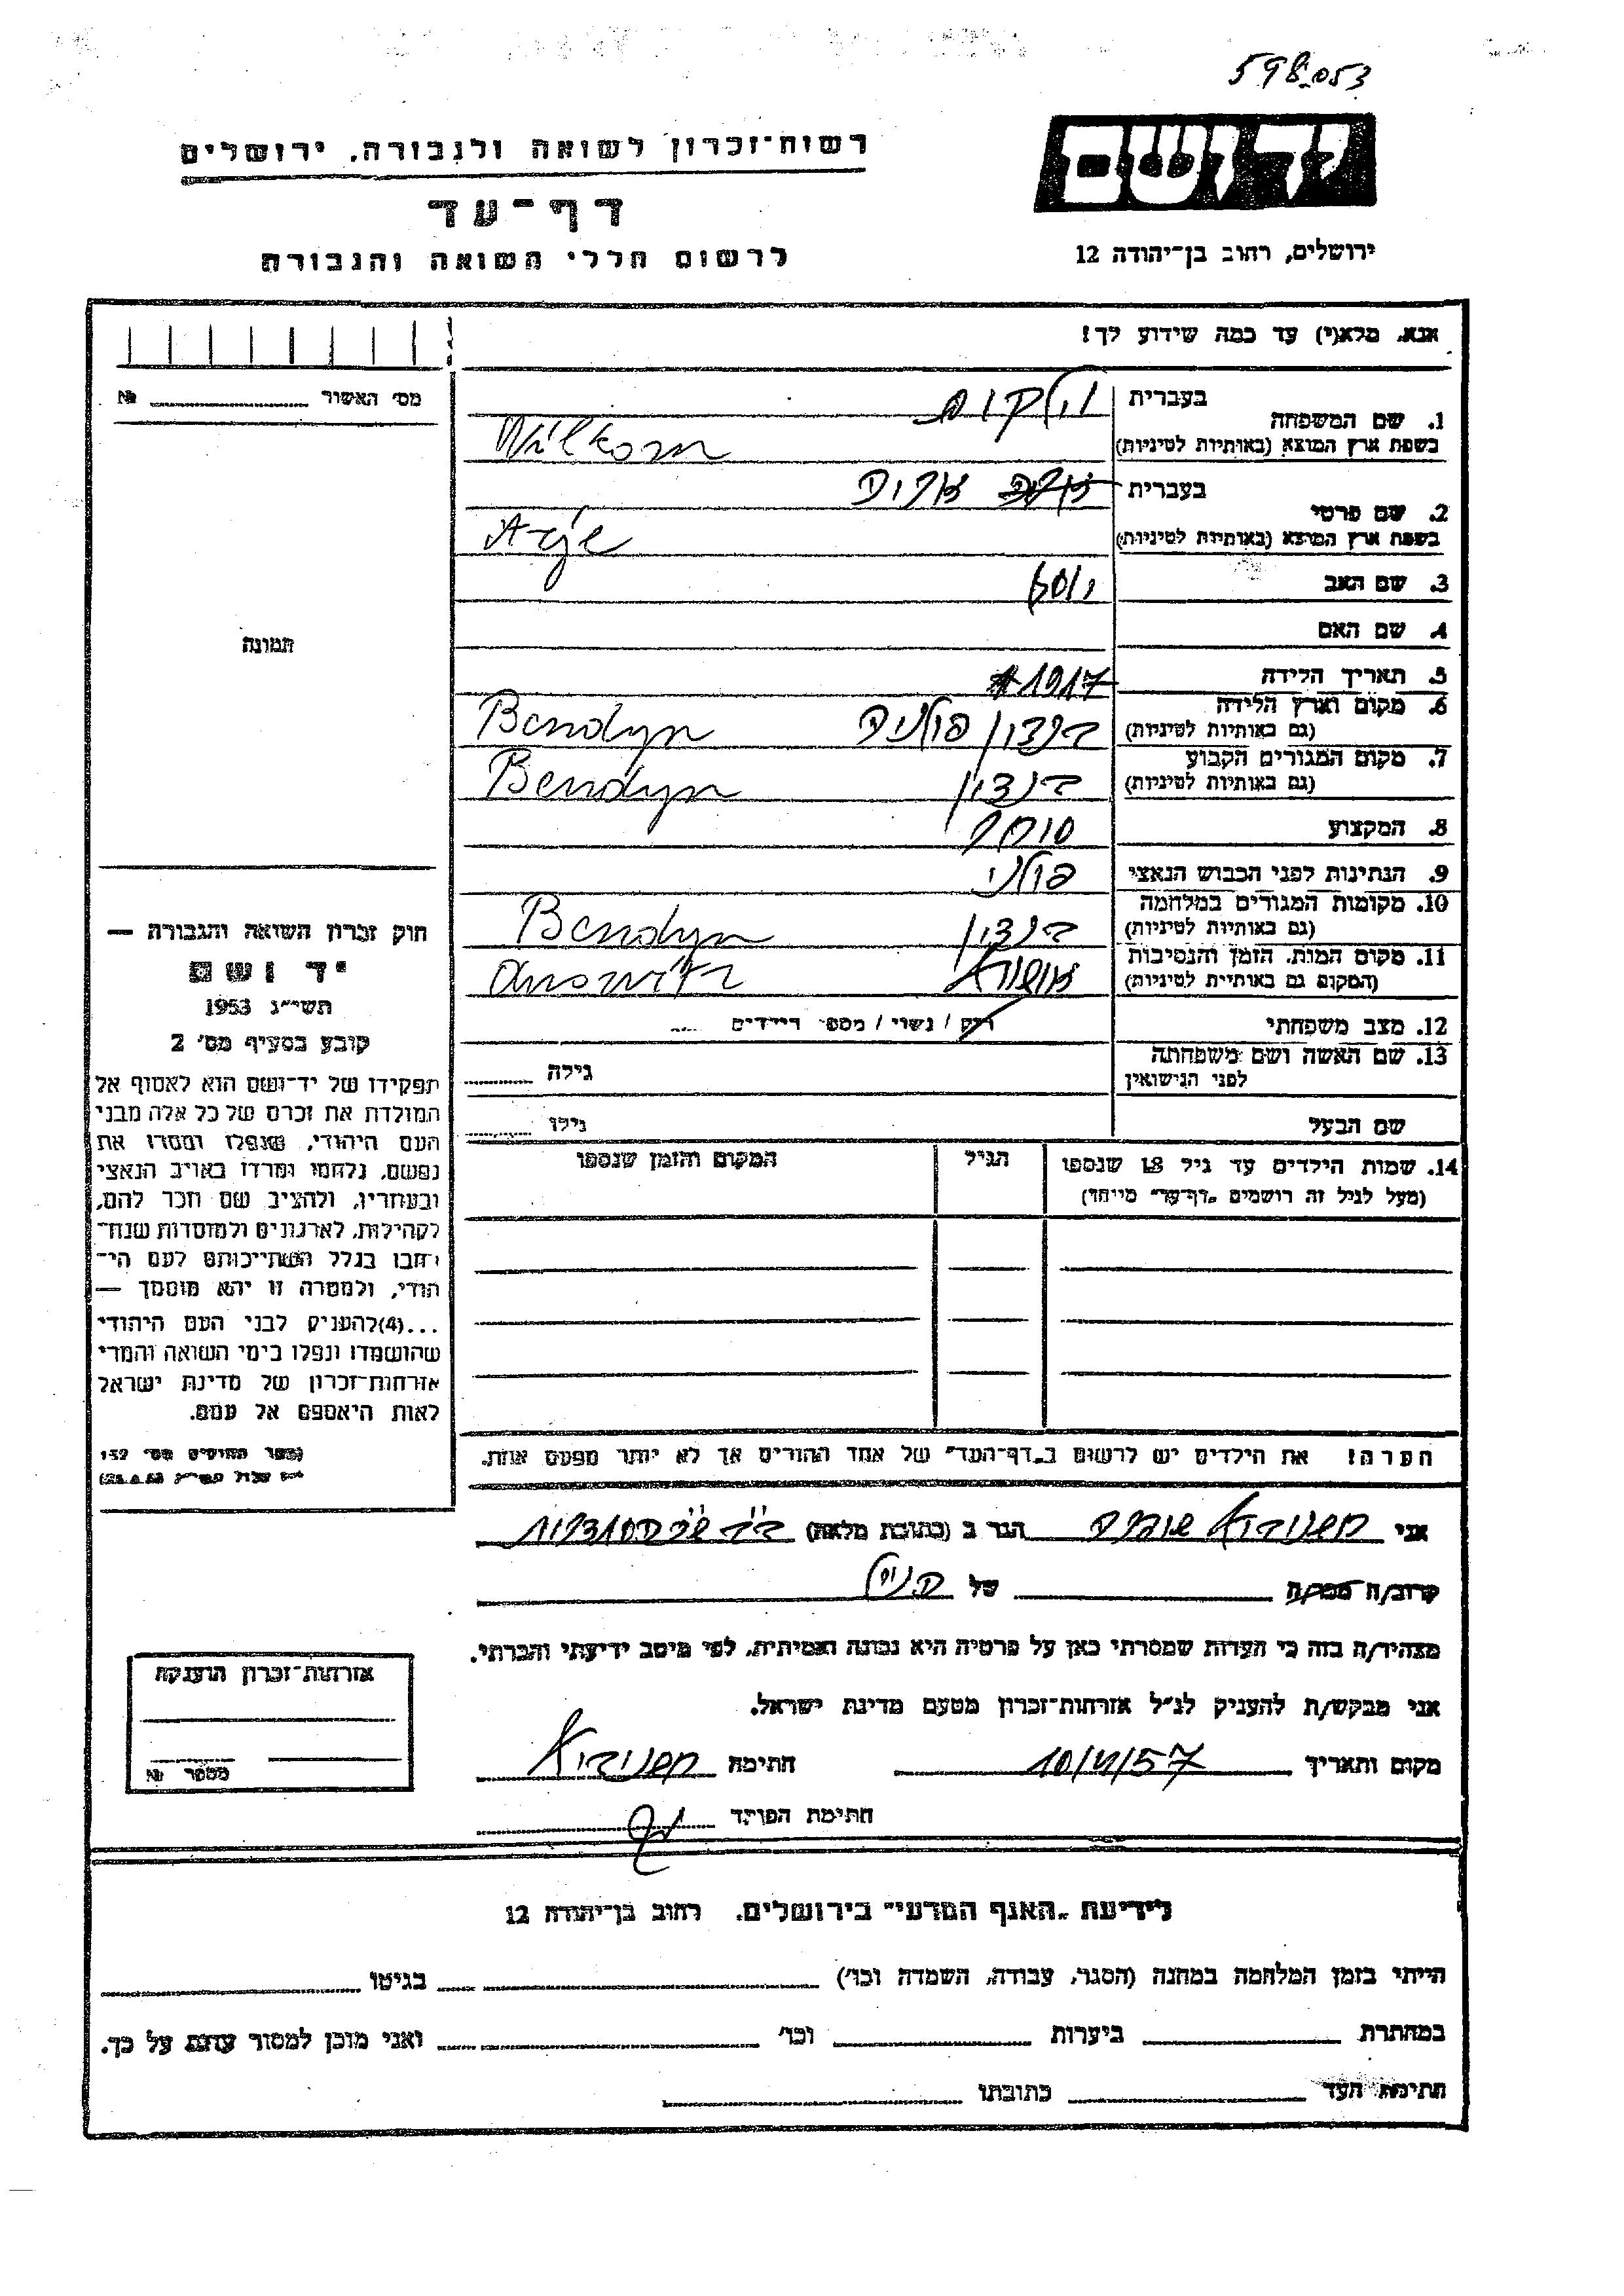 598053
יד ושם
רשות־זכרון לשואה ולגבורה, ירושלים
דף־עד
לרשום חללי השואה והגבורה
ירושלים, רחוב בן־יהודה 12
אנא, מלא(י) עד כמה שידוע לך!
מס׳ האשור № 
1. שם המשפחה
בעברית
(בשפת ארץ המוצא (באותיות לטיניות
Wilkom
2. שם פרטי
בעברית
(בשפת ארץ המוצא (באותיות לטיניות
Arje
3. שם האב
4. שם האם
תמונה
5. תאריך הלידה 1917
6. מקום וארץ הלידה בנדין פולניה Bendyn
(גם באותיות לטיניות)
7. מקום המגורים הקבוע בנדין Bendyn
(גם באותיות לטיניות)
8. המקצוע סוחר
9. הנתינות לפני הכבוש הנאצי פולני
10. מקומות המגורים במלחמה בנדין Bendyn
(גם באותיות לטיניות)
11. מקום המות, הזמן והנסיבות
(המקום גם באותיות לטיניות)
12. מצב משפחתי רוק / נשוי / מספר הילדים
13. שם האשה ושם משפחתה גילה
לפני הנישואין
שם הבעל גילו
14. שמות הילדים עד גיל 18 שנספו הגיל המקום והזמן שנספו
(מעל לגיל זה רושמים „דף־עד״ מייוחד)
חוק זכרון השואה והגבורה —
יד ושם
תשי״ג 1953
קובע בסעיף מס׳ 2
תפקידו של יד־ושם הוא לאסוף אל
המולדת את זכרם של כל אלה מבני
העם היהודי, שנפלו ומסרו את
נפשם, נלחמו ומרדו באויב הנאצי
ובעוזריו, ולהציב שם וזכר להם,
לקהילות, לארגונים ולמוסדות שנח־
רבו בגלל השתייכותם לעם הי־
הודי, ולמטרה זו יהא מוסמך —
...(4)להעניק לבני העם היהודי
שהושמדו ונפלו בימי השואה והמרי
אזרחות־זכרון של מדינת ישראל
לאות היאספם אל עמם.
(ספר החוקים מס׳ 132
הערה! את הילדים יש לרשום ב„דף־העד״ של אחד ההורים אך לא יותר מפעם אחת.
אני הגר ב (כתובת מלאה)
קרוב/ה מכר/ה של
מצהיר/ה בזה כי העדות שמסרתי כאן על פרטיה היא נכונה ואמיתית, לפי מיטב ידיעתי והכרתי.
אני מבקש/ת להעניק לנ״ל אזרחות־זכרון מטעם מדינת ישראל.
מקום ותאריך חתימה
חתימת הפוקד
אזרחות־זכרון הוענקה
מספר №
לידיעת „האגף המדעי״ בירושלים, רחוב בן־יהודה 12
הייתי בזמן המלחמה במחנה (הסגר, עבודה, השמדה וכו׳) בגיטו
במחתרת ביערות וכו׳ ואני מוכן למסור עדות על כך.
חתימת העד כתובתו